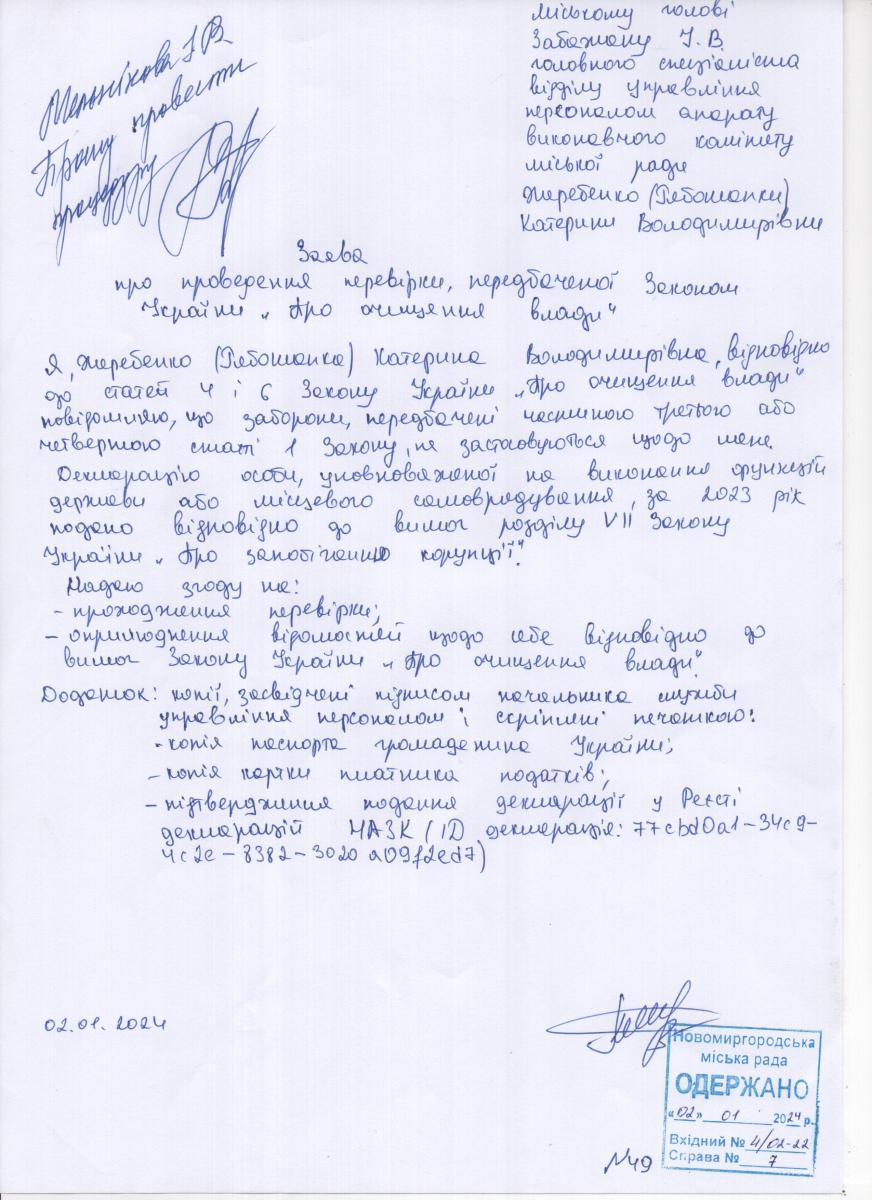 Мельнікова І В
Прошу провести
процедуру
міському голові
Забажану І. В.
головного спеціаліста
відділу управління
персоналом апарату
виконавчого комітету
міської ради
Жеребенко (Рябошапки)
Катерини Володимирівни
Заява
про проведення перевірки, передбаченої Законом
України „Про очищення влади"
Я, Жеребенко (Рябошапка) Катерина Володимирівна, відповідно
до статей 4 і 6 Закону України „Про очищення влади"
повідомляю, що заборони, передбачені частиною третьою або
четвертою статті 1 Закону, не застосовуються щодо мене.
Декларацію особи, уповноваженої на виконання функцій
держави або місцевого самоврядування, за 2023 рік
подано відповідно до вимог розділу VII Закону
України „Про запобіганню корупції".
Надаю згоду на:
- проходження перевірки;
- оприлюднення відомостей щодо себе відповідно до
вимог Закону України „Про очищення влади".
Додаток: копії, засвідчені підписом начальника служби
управління персоналом і скріплені печаткою:
- копія паспорта громадянина України;
- копія картки платника податків;
- підтвердження подання декларації у Реєсті
декларацій НАЗК (ID декларація: 77cbd0a1-34c9-
4c2e-8382-3020a09f2ed7)
02.01.2024
Новомиргородська
міська рада
ОДЕРЖАНО
«02» 01 2024 р.
Вхідний № 4/02-22
Справа № 7
№49